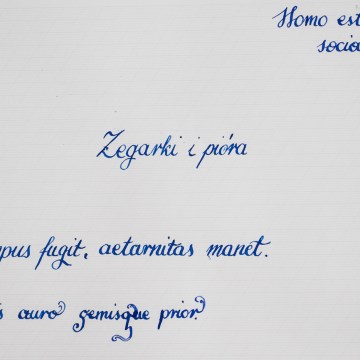 Homo est
socia
Zegarki i pióra
pus fugit, aetarnitas manet.
s auro gemisque prior.